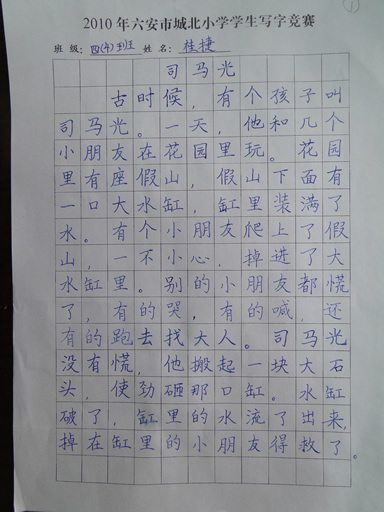 ①
2010年六安市城北小学学生写字竞赛
班级:四(4)班 姓名:桂捷
司马光
古时候,有个孩子叫
司马光。一天,他和几个
小朋友在花园里玩。花园
里有座假山,假山下面有
一口大水缸,缸里装满了
水。有个小朋友爬上了假
山,一不小心,掉进了大
水缸里。别的小朋友都慌
了,有的哭,有的喊,还
有的跑去找大人。司马光
没有慌,他搬起一块大石
头,使劲砸那口缸。水缸
破了,缸里的水流了出来,
掉在缸里的小朋友得救了。